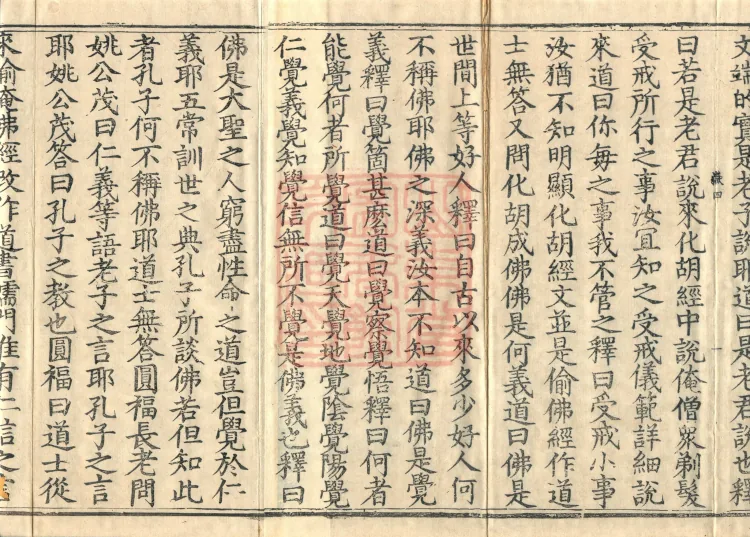 文端的實是老子說耶道曰是老君說也釋
曰若是老君說來化胡經中說俺僧眾剃髮
受戒所行之事汝冝知之受戒儀範詳細說
來道曰你每之事我不管之釋曰受戒小事
汝猶不知明顯化胡經文並是偷佛經作道
士無答又問化胡成佛佛是何義道曰佛是
世間上等好人釋曰自古以來多少好人何
不稱佛耶佛之深義汝本不知道曰佛是覺
義釋曰覺箇甚麽道曰覺察覺悟釋曰何者
能覺何者所覺道曰覺天覺地覺陰覺陽覺
仁覺義覺知覺信無所不覺是佛義也釋曰
佛是大聖之人窮盡性命之道豈但覺於仁
義耶五常訓世之典孔子所談佛若但知此
者孔子何不稱佛耶道士無答圓福長老問
姚公茂曰仁義等語老子之言耶孔子之言
耶姚公茂答曰孔子之教也圓福曰道士從
來偷俺佛經改作道書儒門唯有仁信之